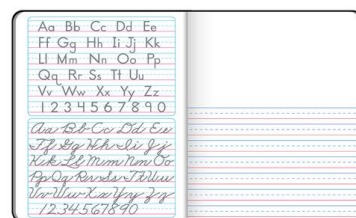 Aa Bb Cc Dd Ee
Ff Gg Hh Ii Jj Kk
Ll Mm Nn Oo Pp
Qq Rr Ss Tt Uu
Vv Ww Xx Yy Zz
1 2 3 4 5 6 7 8 9 0
Aa Bb Cc Dd Ee
Ff Gg Hh Ii Jj
Kk Ll Mm Nn Oo
Pp Qq Rr Ss Tt Uu
Vv Ww Xx Yy Zz
1 2 3 4 5 6 7 8 9 0